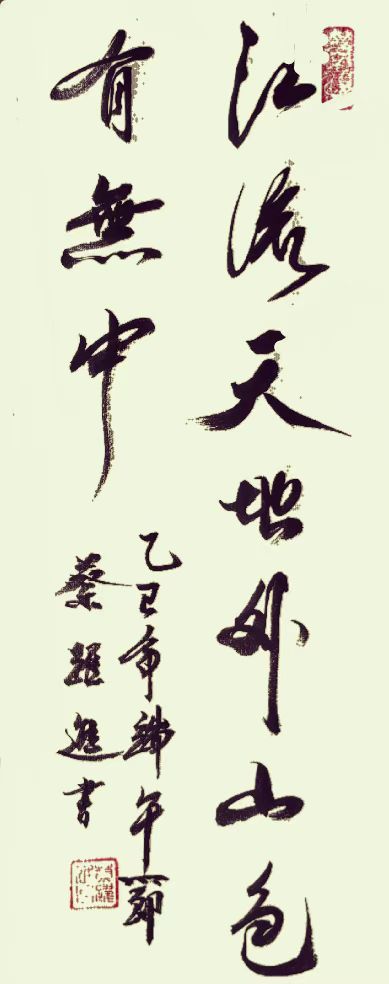 江流天地外山色
有無中
乙巳年端午節
蔡躍進書